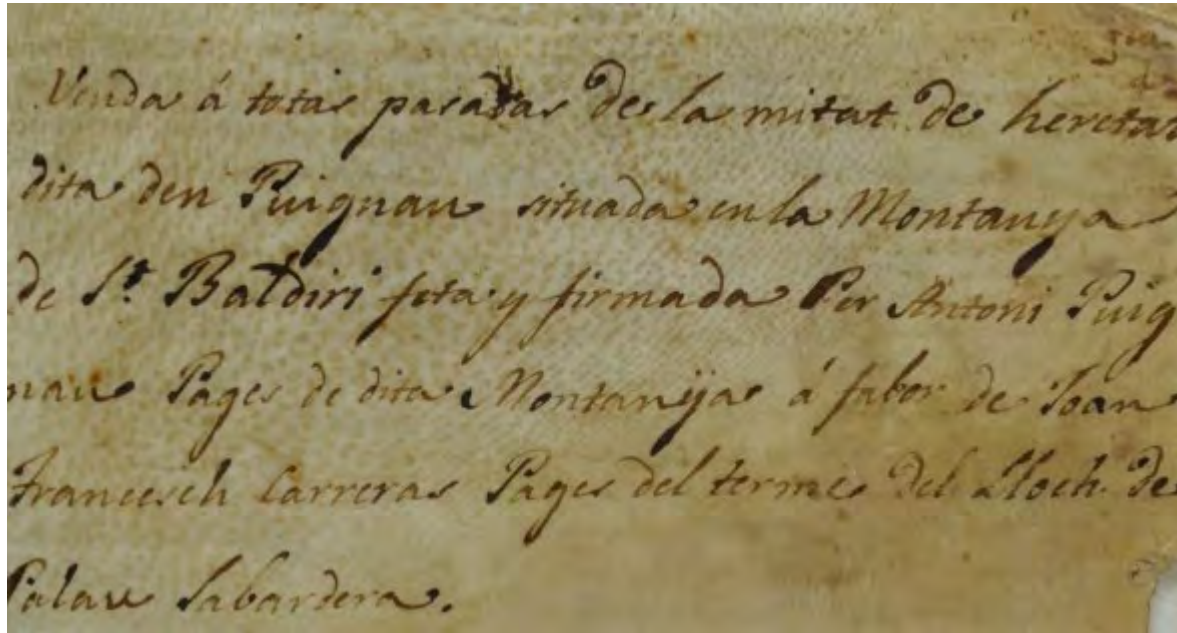 Venda á totas pasadas de la mitat de heretat
dita den Puignau situada en la Montanya
de St. Baldiri feta y firmada Per Antoni Puig
nau Pages de dita Montanÿa á fabor de Joan
Francesch Carreras Pages del terme del Lloch de
Palau Sabardera.